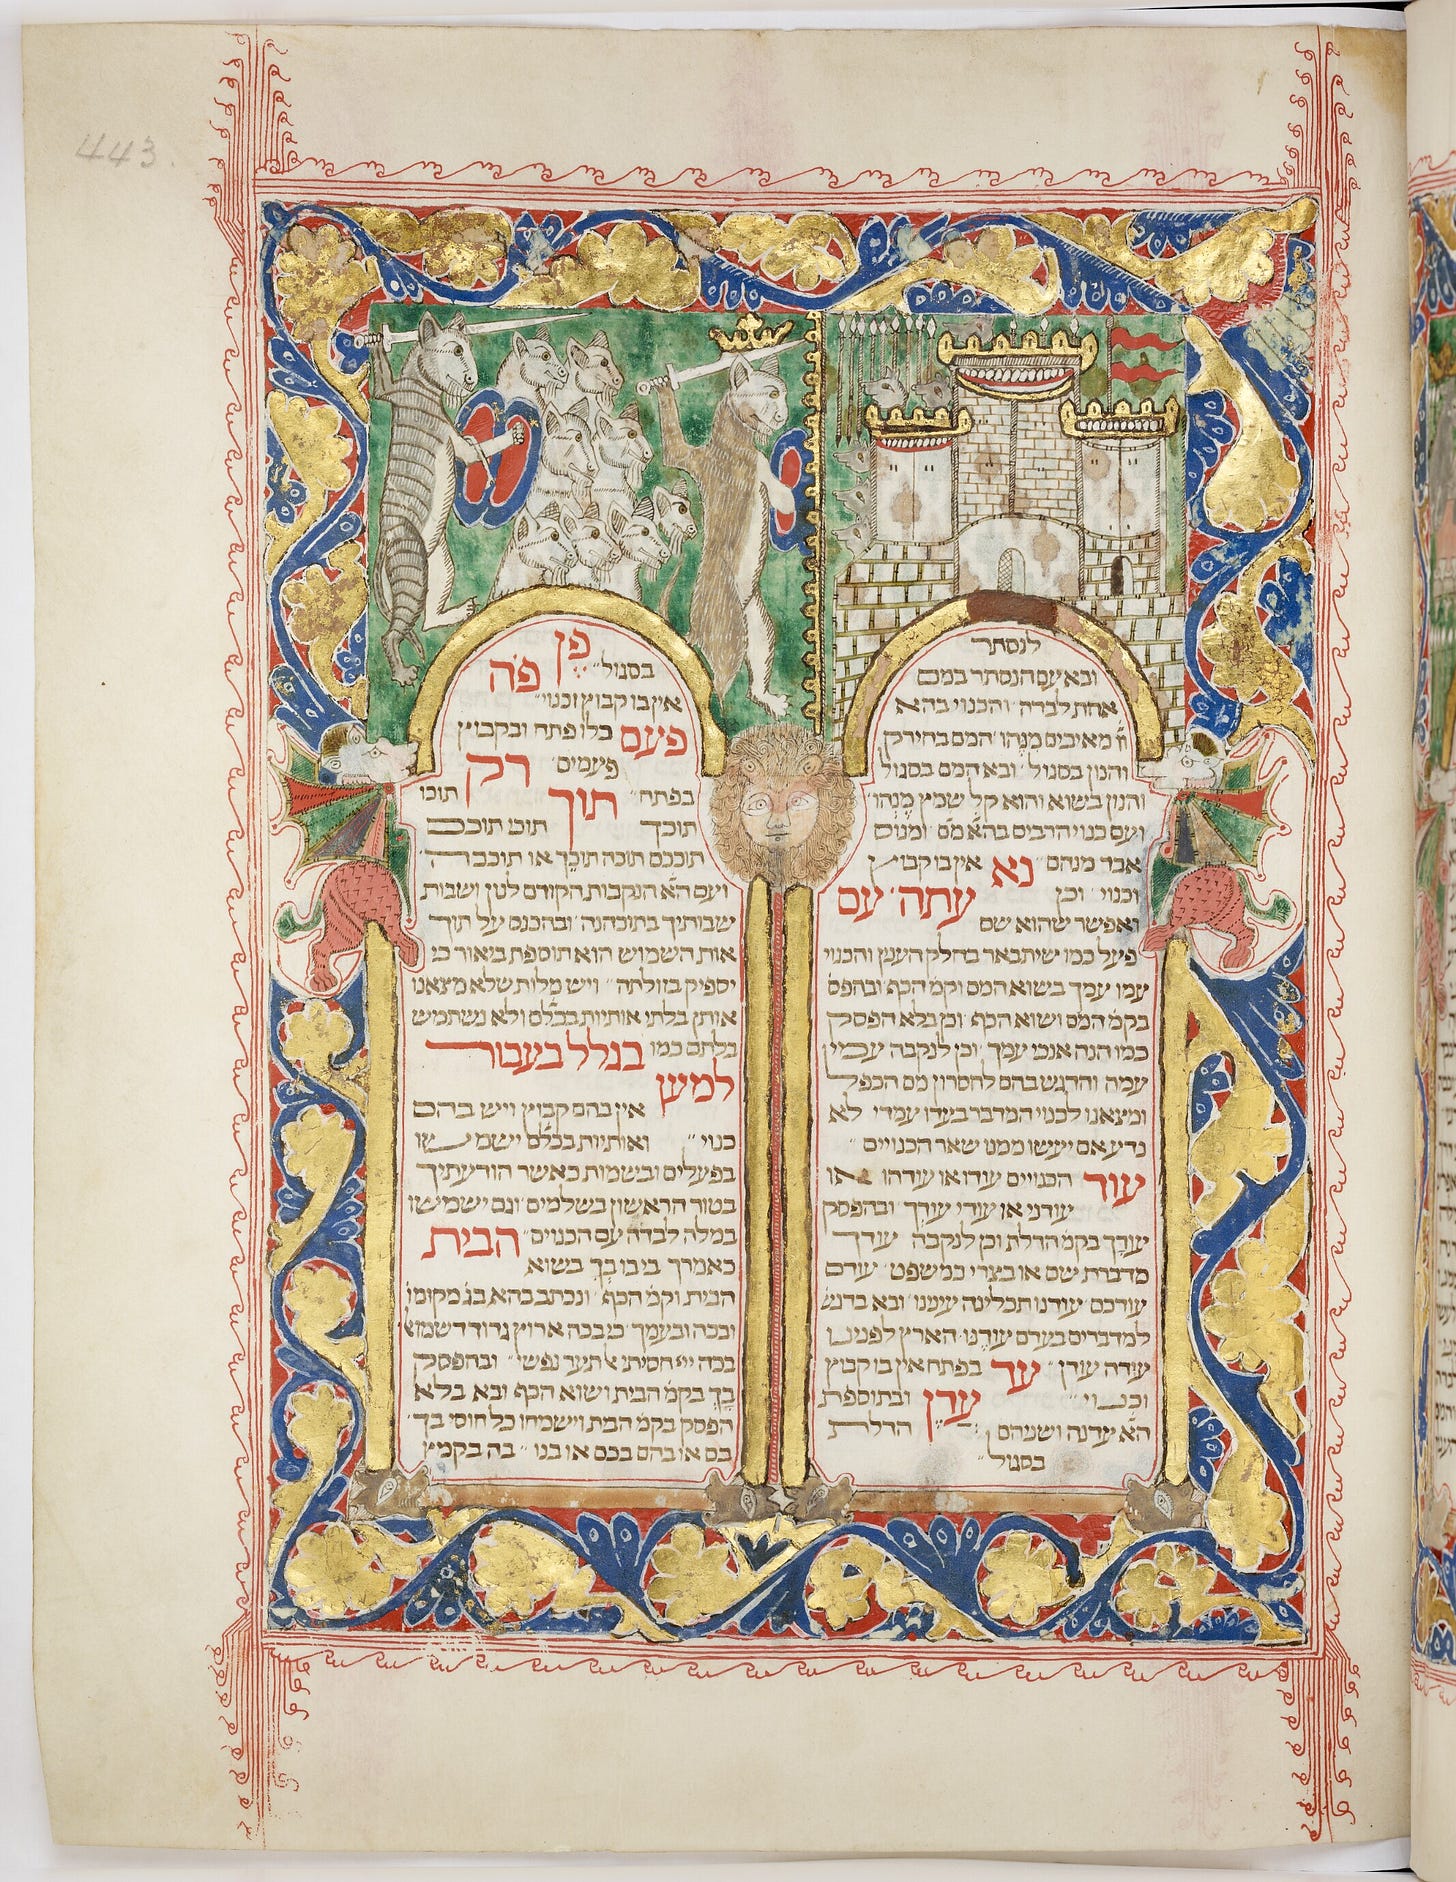 443.
לנסתר
ובא עם הנסתר במכם
אחת לבדה והכנוי בהא
מאויבים מנהו המם בחירק
והנון בסגול ובא המם בסגול
והנון בשוא והוא קל שמץ מנהו
ועם כנוי הרבים בהא מם ומנום
אבד מנהם נא אין בו קבוץ
וכנוי וכן עתה עם
ואפשר שהוא שם
פועל כמו שיתבאר בחלק הענין והכנוי
עמו עמך בשוא המם וקמ הכף ובהפס
בקמ המם ושוא הכף וכן בלא הפסק
כמו הנה אנכי עמך וכן לנקבה עמך
עמה והדגש בהם לחסרון מם הכפל
ומצאנו לכנוי המדבר בעדו עמדי לא
נדע אם יעשו ממנו שאר הכנויים
עוד הכנויים עודו או עודהו או
עודני או עודי עודך ובהפסק
עודך בקמ הדלת וכן לנקבה עודך
מדברת שם או בצרי כמשפט עודם
עודכם עודנו תכלינה עינינו ובא בדגש
למדברים בעדם עודנו הארץ לפנינו
עודה עודן עד בפתח אין בו קבוץ
וכנוי עדן ובתוספת
הא עדנה ושניהם הדלת
בסגול
פן בסגול פה
אין בו קבוץ וכנוי
פעם כלו פתח ובקבוץ
פעמים רק
בפתח תוך תוכו
תוכך תוכי תוככם
תוככם תוכה תוכך או תוכבה
ועם הא הנקבות הקודם לנון ושבות
שבותיך בתוכהנה ובהכנס על תוך
אות השמוש הוא תוספת ביאור כי
יספיק בזולתה ויש מלות שלא מצאנו
אותן בלתי אותיות בכלם ולא נשתמש
בלתם כמו בגלל בעבור
למען
אין בהם קבוץ ויש בהם
כנוי ואותיות בכלם ישמשו
בפעלים ובשמות כאשר הודעתיך
בטור הראשון בשלמים וגם ישמשו
במלה לבדה עם הכנוים הבית
כאמרך בי בו בך בשוא
הבית וקמ הכף ונכתב בהא בג מקומו
ובכה ובעמך כי בכה ארוץ גדוד דשמואל
בכה יי חסיתי אל תער נפשי ובהפסק
בך בקמ הבית ושוא הכף ובא בלא
הפסק בקמ הבית וישמחו כל חוסי בך
בם או בהם בכם או בנו בה בקמץ